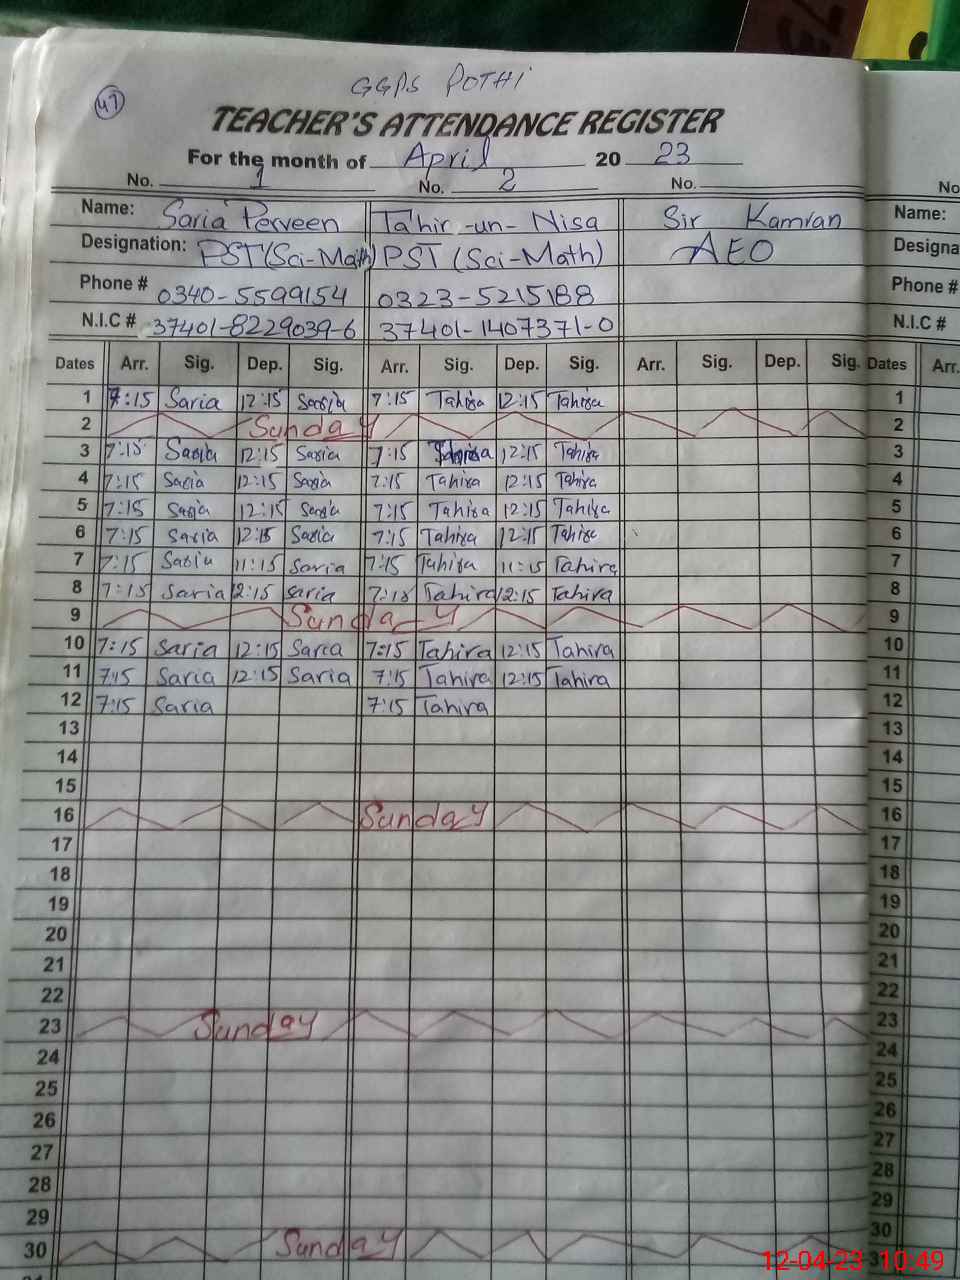 GGPS POTHI
47
TEACHER'S ATTENDANCE REGISTER
For the month of April 20 23
No. 1 No. 2 No. No
Name: Saria Perveen Tahir-un-Nisa Sir Kamran Name:
Designation: PST (Sci-Math) PST (Sci-Math) AEO Designa
Phone # 0340-5599154 0323-5215188 Phone #
N.I.C # 37401-8229039-6 37401-1407371-0 N.I.C #
Dates Arr. Sig. Dep. Sig. Arr. Sig. Dep. Sig. Arr. Sig. Dep. Sig. Dates Arr.
1 7:15 Saria 12:15 Saria 7:15 Tahira 12:15 Tahira 1
2 Sunday 2
3 7:15 Saria 12:15 Saria 7:15 Tahira 12:15 Tahira 3
4 7:15 Saria 12:15 Saria 7:15 Tahira 12:15 Tahira 4
5 7:15 Saria 12:15 Saria 7:15 Tahira 12:15 Tahira 5
6 7:15 Saria 12:15 Saria 7:15 Tahira 12:15 Tahira 6
7 7:15 Saria 11:15 Saria 7:15 Tahira 11:15 Tahira 7
8 7:15 Saria 12:15 Saria 7:15 Tahira 12:15 Tahira 8
9 Sunday 9
10 7:15 Saria 12:15 Saria 7:15 Tahira 12:15 Tahira 10
11 7:15 Saria 12:15 Saria 7:15 Tahira 12:15 Tahira 11
12 7:15 Saria 7:15 Tahira 12
13 13
14 14
15 15
16 Sunday 16
17 17
18 18
19 19
20 20
21 21
22 22
23 Sunday 23
24 24
25 25
26 26
27 27
28 28
29 29
30 Sunday 30
12-04-23 10:49